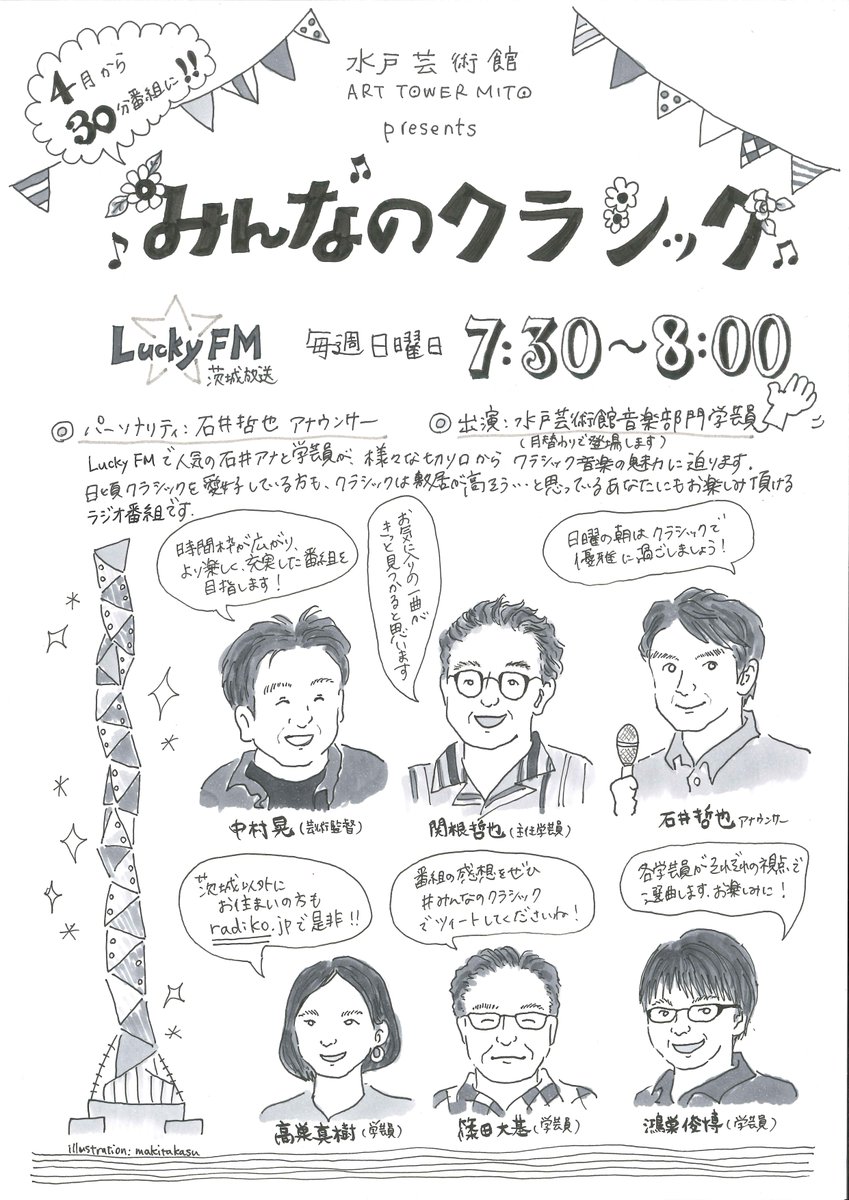 4月から
30分番組に!!
水戸芸術館
ART TOWER MITO
presents
みんなのクラシック
Lucky FM
茨城放送
毎週日曜日 7:30~8:00
◎ パーソナリティ:石井哲也 アナウンサー
◎ 出演:水戸芸術館音楽部門学芸員
(月替わりで登場します)
Lucky FMで人気の石井アナと学芸員が、様々な切り口から クラシック音楽の魅力に迫ります。
日頃クラシックを愛好している方も、クラシックは敷居が高そう…と思っているあなたにもお楽しみ頂ける
ラジオ番組です。
時間枠が広がり、
より楽しく、充実した番組を
目指します!
お気に入りの一曲が
きっと見つかると思います
日曜の朝はクラシックで
優雅に過ごしましょう!
中村晃(芸術監督)
関根哲也(主任学芸員)
石井哲也 アナウンサー
茨城以外に
お住まいの方も
radiko.jpで是非!!
番組の感想をぜひ
#みんなのクラシック
でツイートしてくださいね!
各学芸員がそれぞれの視点で
選曲します。お楽しみに!
高巣真樹(学芸員)
篠田大基(学芸員)
鴻巣俊博(学芸員)
Illustration: makitakasu